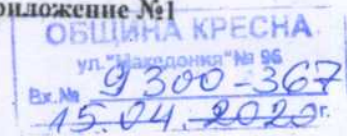 риложение №1
ОБЩИНА КРЕСНА
ул."Македония"№ 96
Вх.№ 9300-367
15.04.2020г.